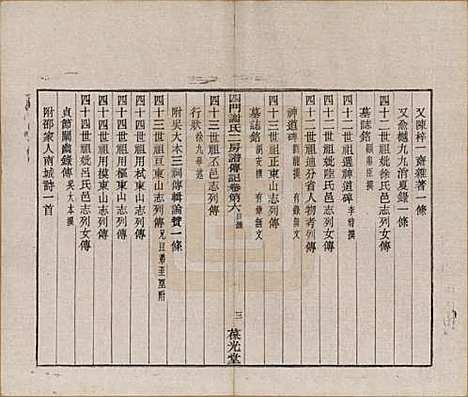 又陳梓一齋雜著一條
又俞樾九九消夏錄一條
四十二世祖妣徐氏邑志列女傳
墓誌銘
四十二世祖選神道碑
四十二世祖迪分省人物考列傳
四十二世祖妣陸氏邑志列女傳
神道碑 有錄無文
四十二世祖正東山志列傳
墓誌銘 有錄無文
四門謝氏二房譜傳記卷第六 目錄
三
葆光堂
四十三世祖丕邑志列傳
行狀
附吳大本三祠傳輯論贊一條
四十三世祖亘東山志列傳
四十四世祖用栻東山志列傳
四十四世祖用樞東山志列傳
四十四世祖用東山志列傳
四十四世祖妣呂氏邑志列女傳
貞節闡幽錄傳 吳大本撰
附邵家人南城詩一首